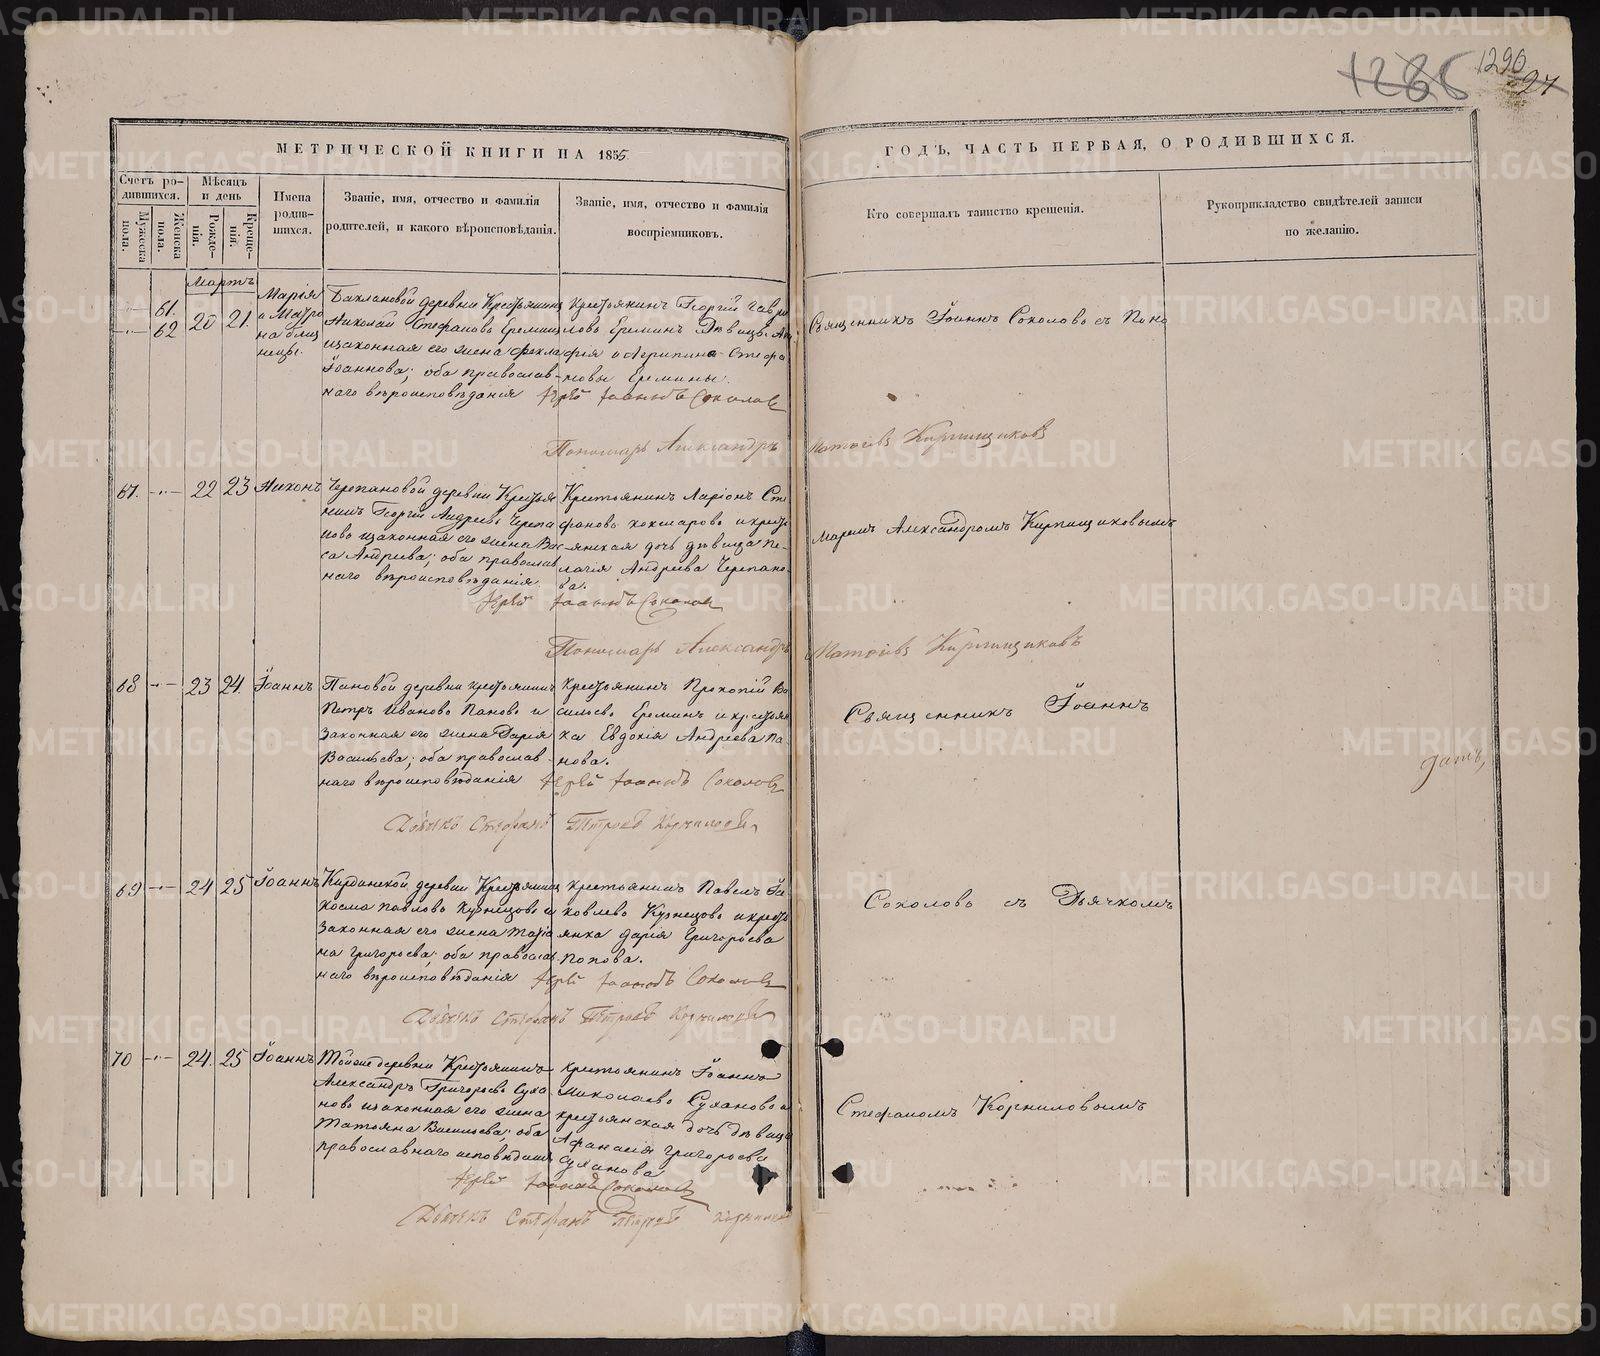 1286 1290
27
МЕТРИЧЕСКОЙ КНИГИ НА 1855
ГОДЪ, ЧАСТЬ ПЕРВАЯ, О РОДИВШИХСЯ.
Счетъ ро-
дившихся.
Мѣсяцъ
и день
Мужеска
пола.
Женска
пола.
Рожде-
нія.
Креще-
нія.
Имена
родив-
шихся.
Званіе, имя, отчество и фамилія
родителей, и какого вѣроисповѣданія.
Званіе, имя, отчество и фамилія
воспріемниковъ.
Кто совершалъ таинство крещенія.
Рукоприкладство свидѣтелей записи
по желанію.
Мартъ
61.
62
20
21.
Марія
и Матро
на близ
нецы.
Баклановой деревни Крестьянинъ
Николай Стефановъ Ереминъ
и законная его жена Фекла
Іоаннова; оба православ-
наго вѣроисповѣданія
Крестьянинъ Георгій Гаври
ловъ Ереминъ Дѣвицы
и Агрипина Стефа
новы Еремины.
Іерей Іоаннъ Соколовъ
Священникъ Іоаннъ Соколовъ съ Поно
Пономарь Александръ
Кирпищиковъ
67.
22
23
Никонъ
Черепановой деревни Крестья
нинъ Георгій Андреевъ Черепа
новъ и законная его жена Вас
са Андреева; оба православ
наго вѣроисповѣданія.
Крестьянинъ Ларіонъ Сте
фановъ Кокшаровъ и крестъ
янская дочь дѣвица Пе-
лагія Андреева Черепано-
ва.
Іерей Іоаннъ Соколов
маремъ Александромъ Кирпищиковымъ
Пономарь Александръ
Кирпищиковъ
68
23
24.
Іоаннъ
Пановой деревни крестьянинъ
Петръ Ивановъ Пановъ и
законная его жена Дарія
Васильева; оба православ-
наго вѣроисповѣданія
Крестьянинъ Прокопій Ва
сильевъ Ереминъ и крестьян
ка Евдокія Андреева Па-
нова.
Іерей Іоаннъ Соколовъ
Священникъ Іоаннъ
Дьячекъ Стефанъ Петровъ Корниловъ
69
24
25
Іоаннъ
Кирданской деревни Крестьянинъ
Косма Павловъ Кузнецовъ и
законная его жена Маріа
на Григорьева; оба православ
наго вѣроисповѣданія
Крестьянинъ Павелъ Іа
ковлевъ Кузнецовъ и крестъ
янка Дарія Григорьева
Попова.
Іерей Іоаннъ Соколовъ
Соколовъ съ Дьячкомъ
Дьячекъ Стефанъ Петровъ Корниловъ
70
24.
25
Іоаннъ
Тойже деревни Крестьянинъ
Александръ Григорьевъ Суха
новъ и законная его жена
Татьяна Васильева; оба
православнаго исповѣданія
Крестьянинъ Іоаннъ
Николаевъ Сухановъ и
крестьянская дочь дѣвица
Афанасія Григорьева
Суханова
Іерей Іоаннъ Соколовъ
Стефаномъ Корниловымъ
Дьячекъ Стефанъ Петровъ Корнилов
METRIKI.GASO-URAL.RU